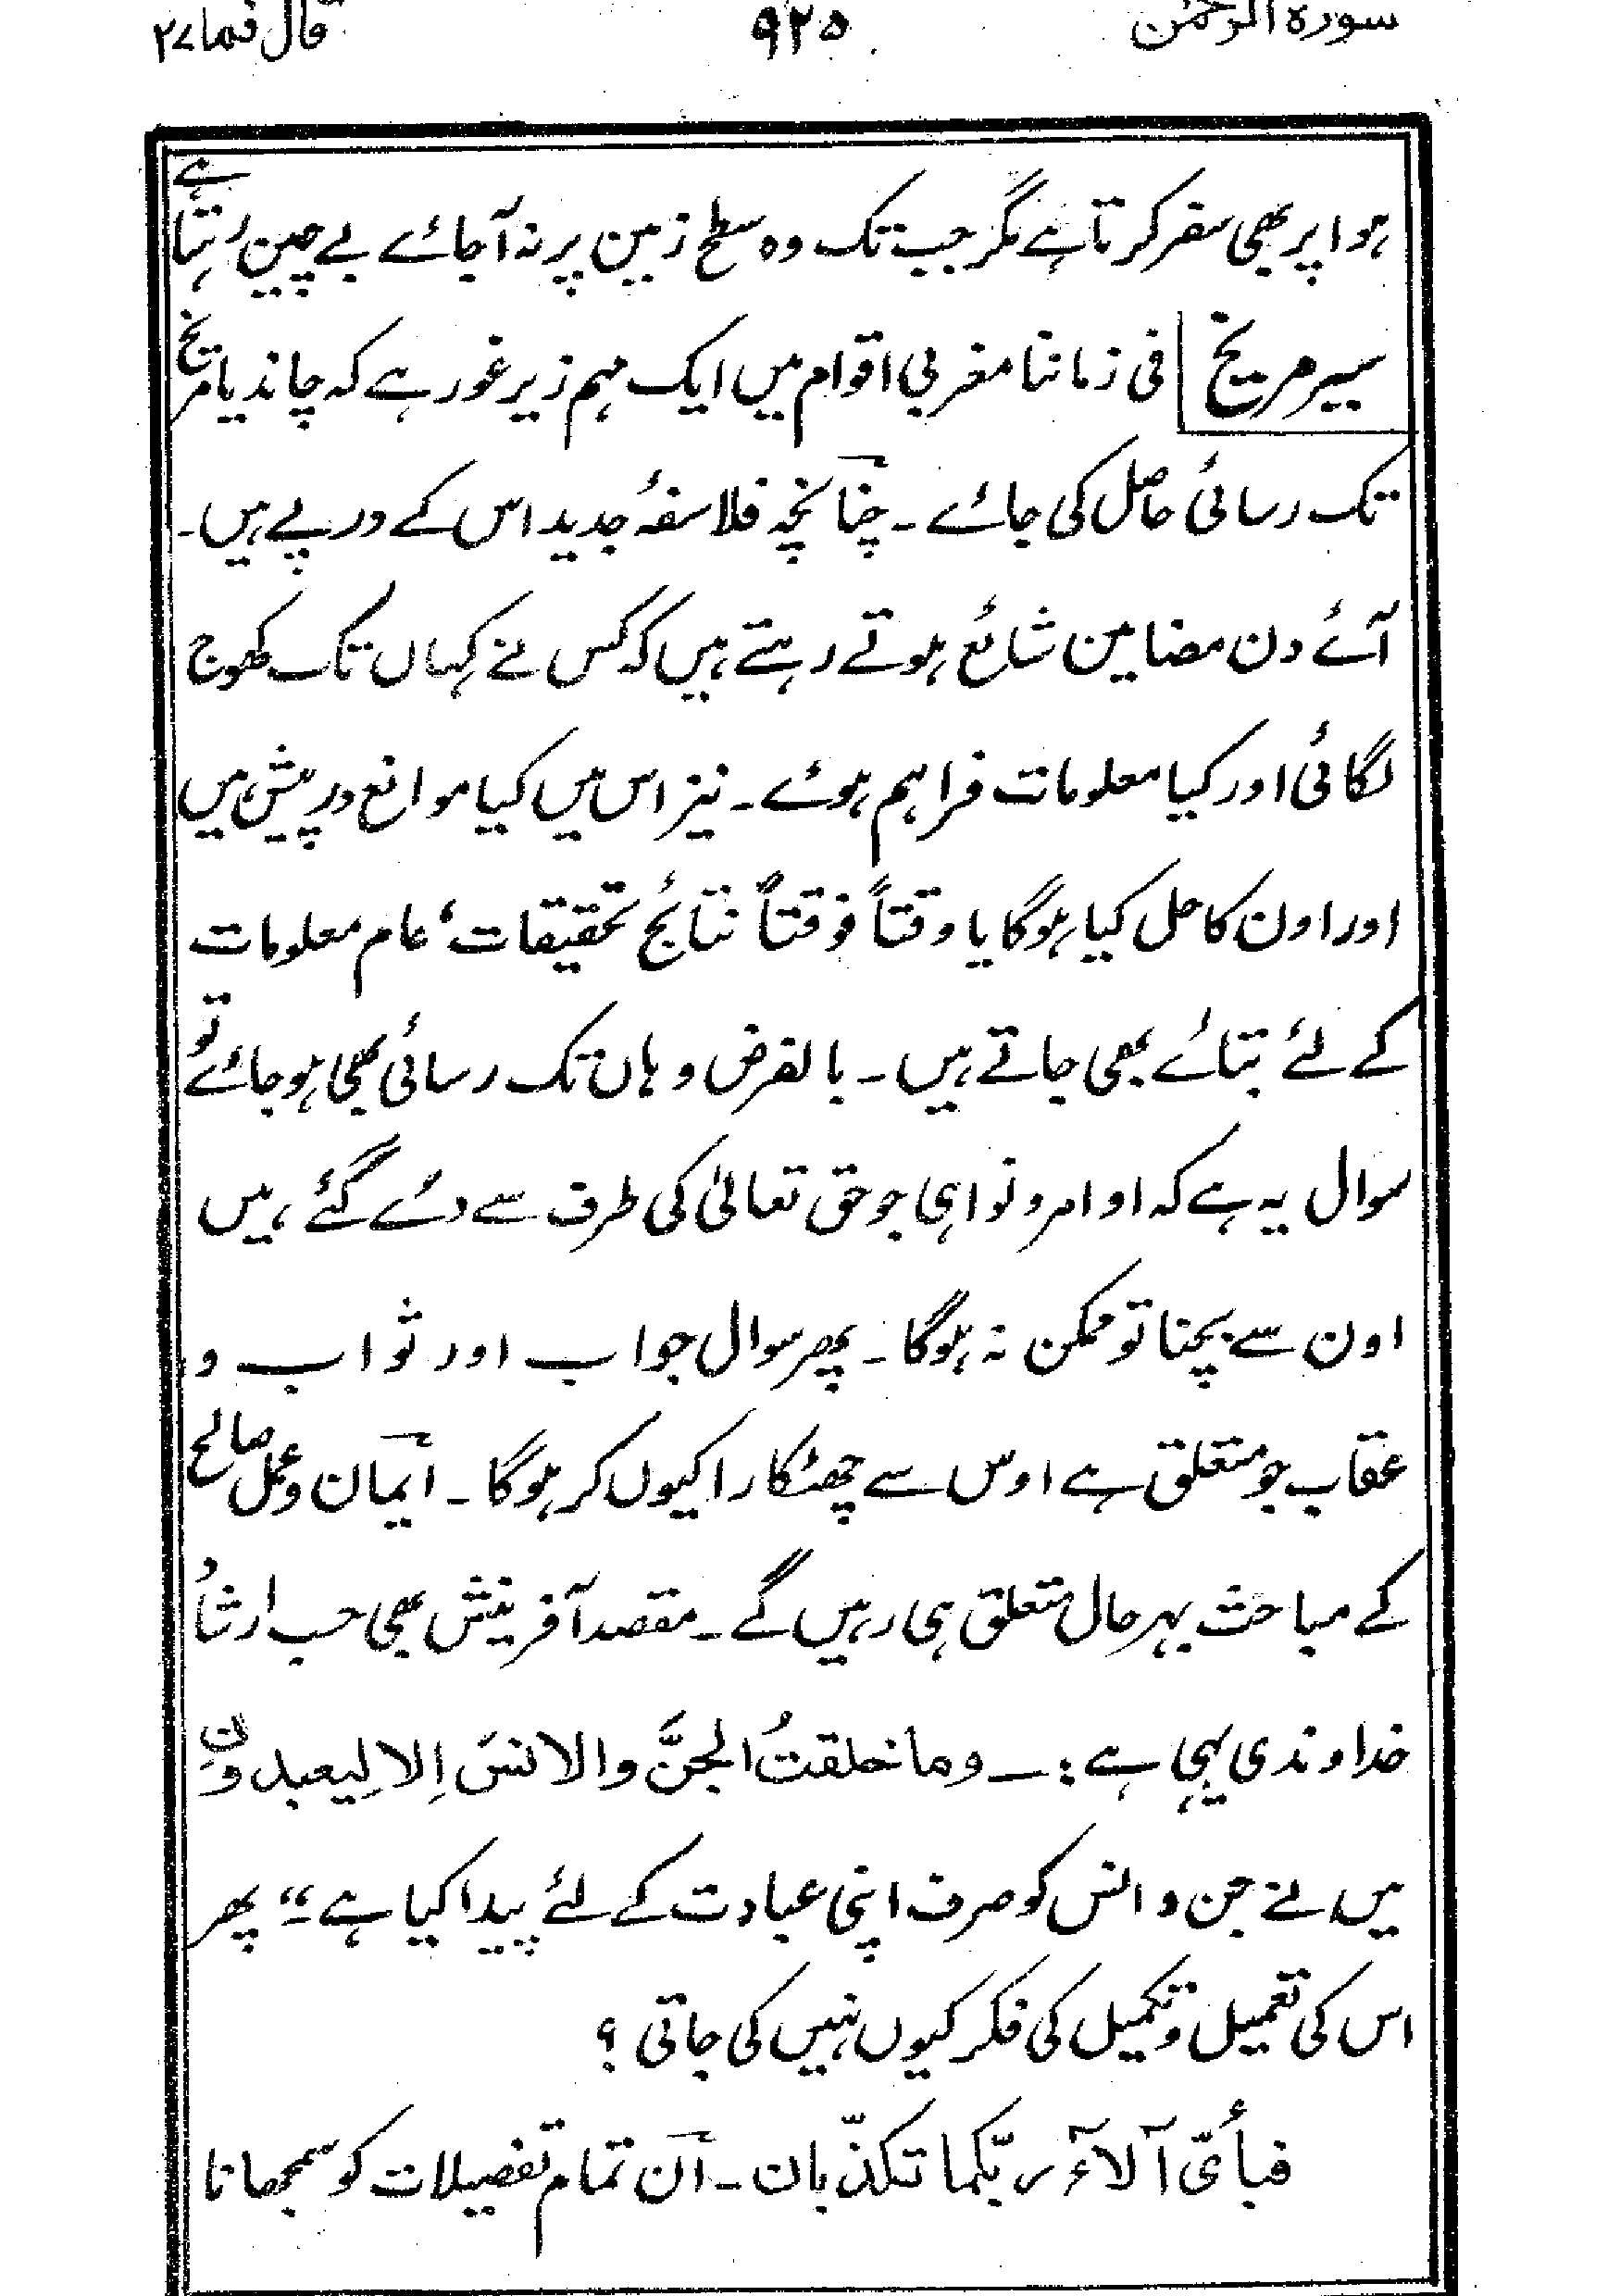 سورہ الرحمٰن ۹۲۵ قال فما ۲۷
ہوا پر بھی سفر کرتا ہے مگر جب تک وہ سطح زمین پر نہ آ جائے بے چین رہتا ہے
سیر مریخ فی زماننا مغربی اقوام میں ایک مہم زیر غور ہے کہ چاند یا مریخ
تک رسائی حاصل کی جائے ۔ چنانچہ فلاسفۂ جدید اس کے درپے ہیں ۔
آئے دن مضامین شائع ہوتے رہتے ہیں کہ کس نے کہاں تک کھوج
لگائی اور کیا معلومات فراہم ہوئے ۔ نیز اس میں کیا موانع درپیش ہیں
اور اون کا حل کیا ہوگا یا وقتاً فوقتاً نتائج تحقیقات، عام معلومات
کے لئے بتائے بھی جاتے ہیں ۔ بالفرض وہاں تک رسائی بھی ہو جائے تو
سوال یہ ہے کہ اوامر و نواہی جو حق تعالیٰ کی طرف سے دئے گئے ہیں
اون سے بچنا تو ممکن نہ ہوگا ۔ پھر سوال جواب اور ثواب و
عقاب جو متعلق ہے اوس سے چھٹکارا کیوں کر ہوگا ۔ ایمان و عمل صالح
کے مباحث بہر حال متعلق ہی رہیں گے ۔ مقصد آفرینش بھی حسب ارشاد
خداوندی یہی ہے :ـ وما خلقتُ الجنَّ والانسَ اِلا لِیعبدونِ
میں نے جن و انس کو صرف اپنی عبادت کے لئے پیدا کیا ہے ۔" پھر
اس کی تعمیل و تکمیل کی فکر کیوں نہیں کی جاتی ؟
فبأیّ آلآء ربّکما تکذّبان ۔ ان تمام تفصیلات کو سمجھانا